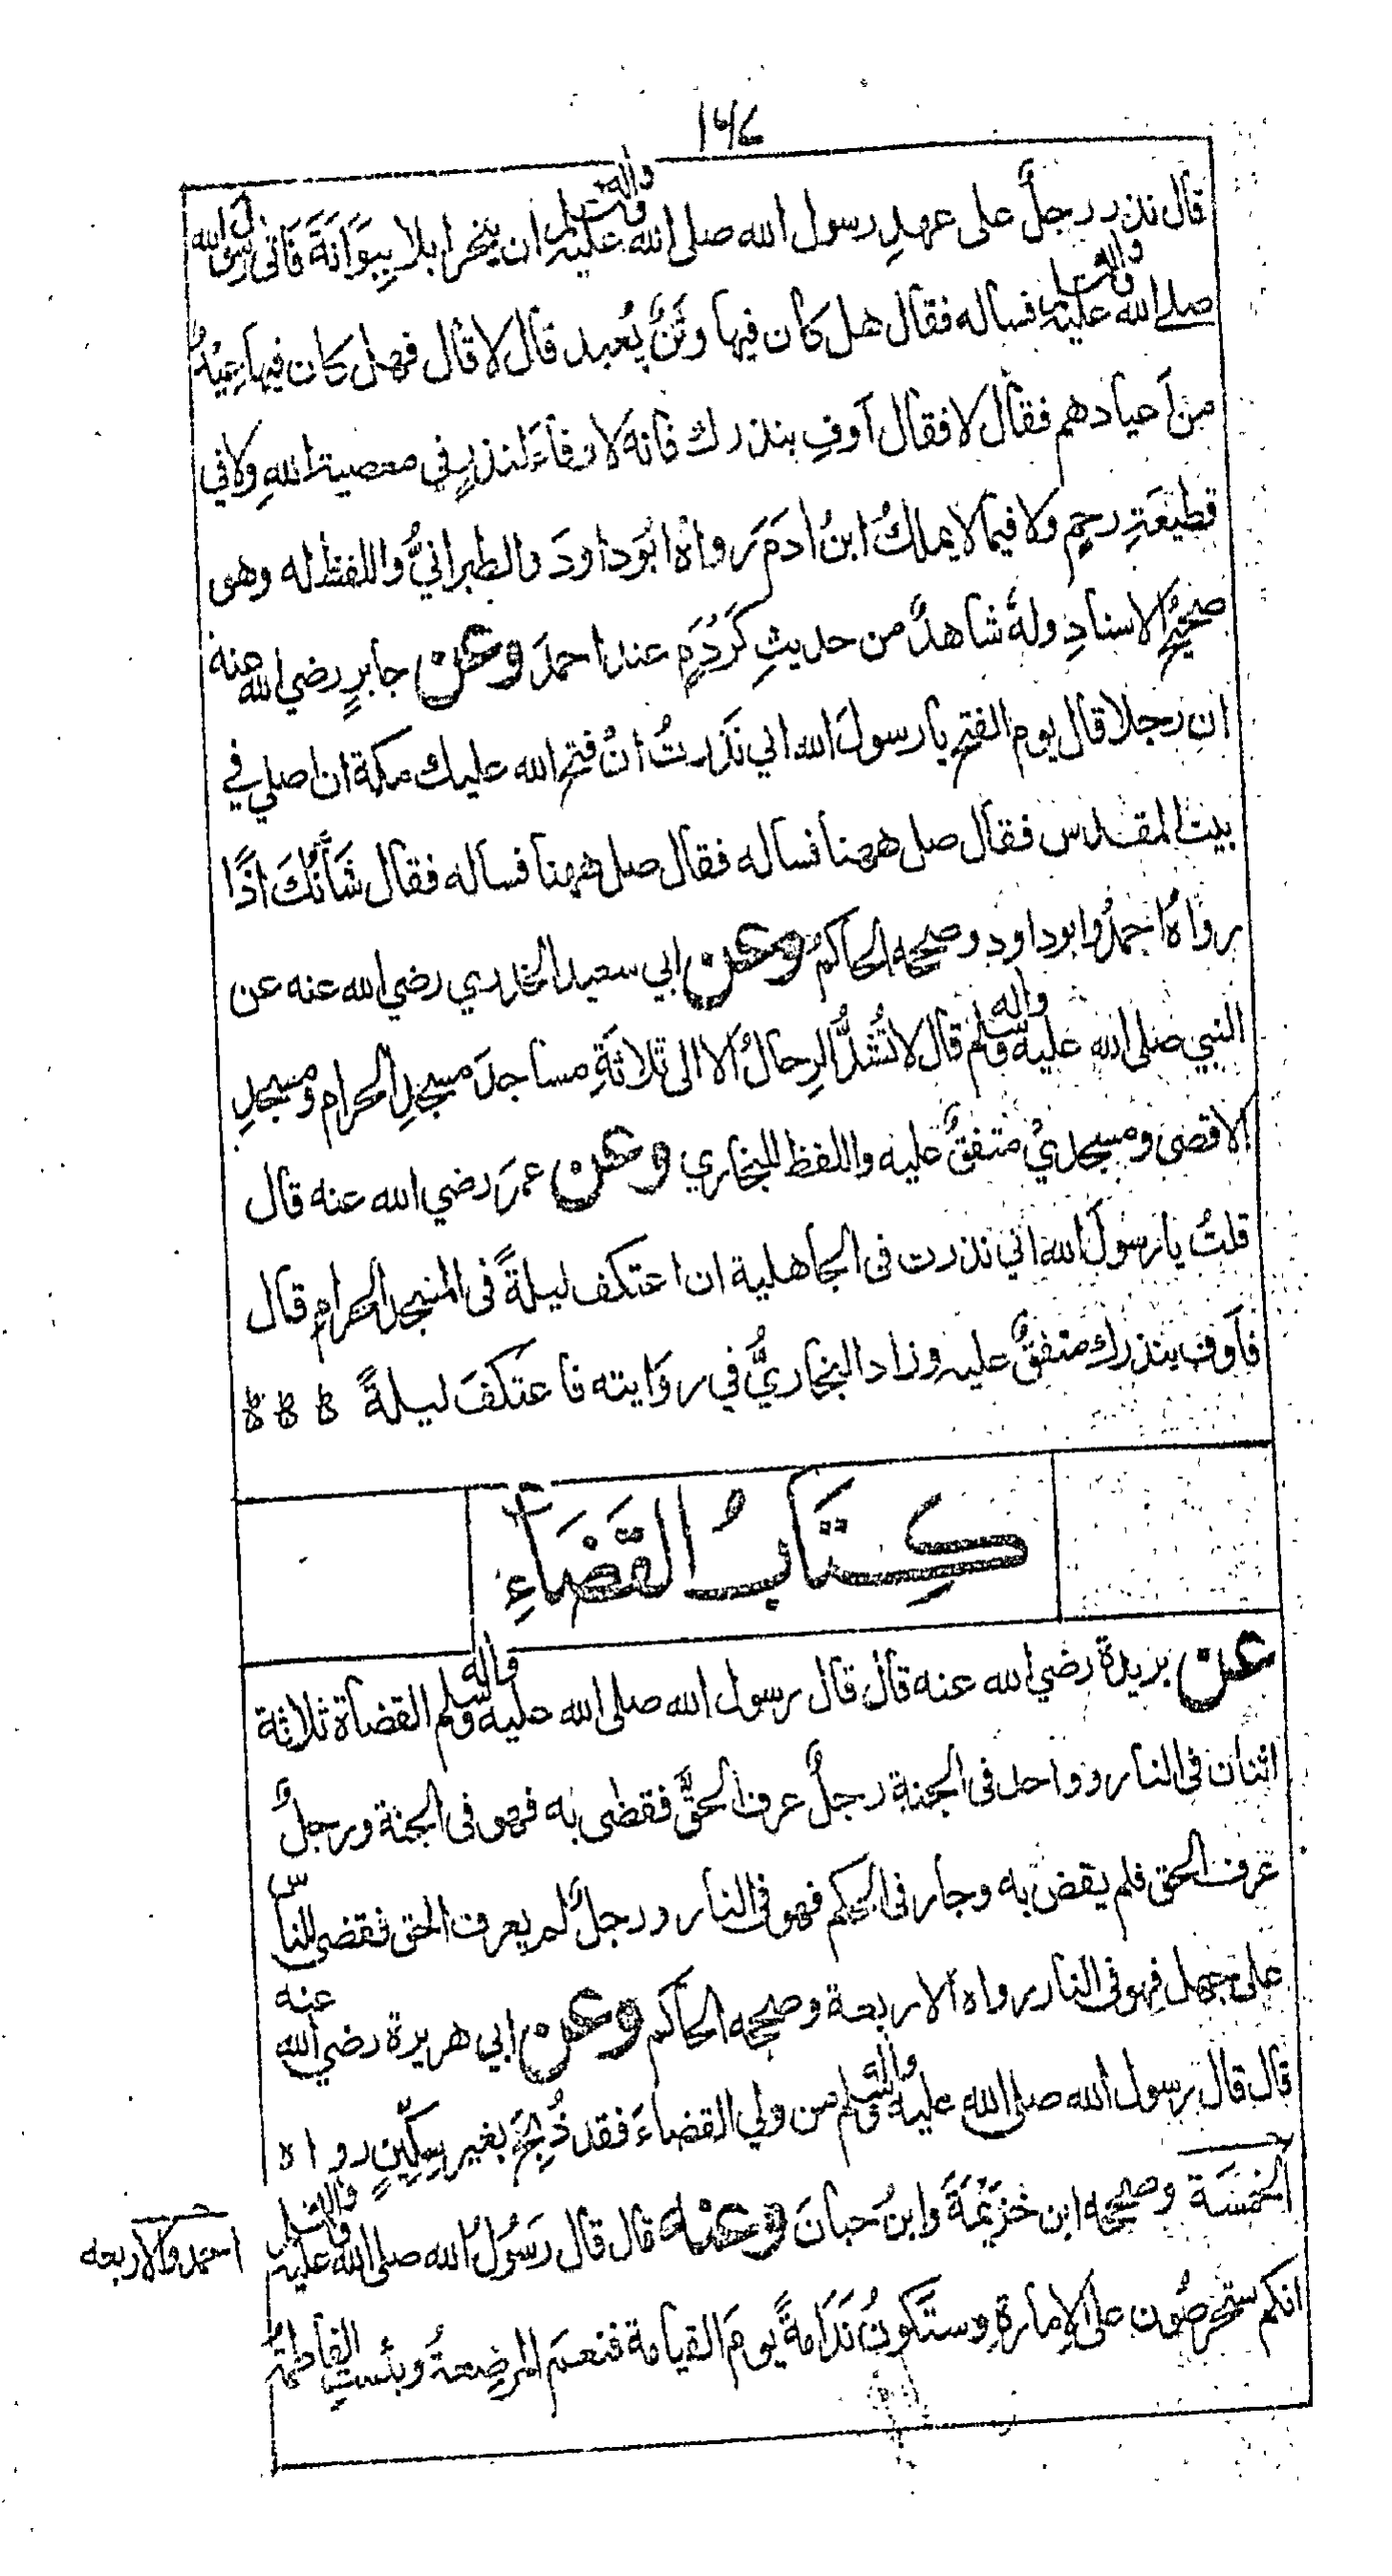 ١٤٧
قال نذر رجلٌ على عهدِ رسول الله صلى الله عليه وآله وسلم ان ينحر ابلا بِبوَانَةَ فَاَتى رسول الله
صلى الله عليه وآله وسلم فساله فقال هل كان فيها وثنٌ يُعبد قال لا قال فهل كان فيها عِيْدٌ
من اَعيادهم فقال لا فقال اَوفِ بنذرك فانه لا وفاءَ لنذرٍ في معصية اللهِ ولا في
قطيعَةِ رحمٍ ولا فيما لا يملكُ ابنُ ادمَ رواهُ ابُوداودَ والطبرانيُّ واللفظ له وهو
صحيحُ الاسنادِ ولهُ شاهدٌ من حديثِ كَرْدَمٍ عند احمدَ وعن جابرٍ رضي الله عنه
ان رجلا قال يوم الفتح يا رسولَ الله اني نَذَرتُ انْ فتح الله عليك مكة ان اصلي في
بيت المقدس فقال صل ههنا فساله فقال صل ههنا فساله فقال شَأنُكَ اذًا
رواهُ احمدُ وابوداود وصححه الحاكم وعن ابي سعيد الخدري رضي الله عنه عن
النبي صلى الله عليه وآله وسلم قال لا تُشدُّ الرحالُ الا الى ثلاثَةِ مساجدَ مسجدِ الحرام ومسجدِ
الاقصى ومسجدي متفقٌ عليه واللفظ للبخاري وعن عمرَ رضي الله عنه قال
قلتُ يا رسولَ الله اني نذرت في الجاهلية ان اعتكف ليلةً في المسجد الحرامِ قال
فاَوفِ بنذرك متفقٌ عليه وزاد البخاريُّ في روَايته فاعتكفَ ليلةً
كِتَابُ القَضَاءِ
عن بريدة رضي الله عنه قال قال رسول الله صلى الله عليه وآله وسلم القضاة ثلاثة
اثنان في النار وواحد في الجنةِ رجلٌ عرف الحقَّ فقضى به فهو في الجنة ورجلٌ
عرف الحق فلم يقض به وجار في الحكم فهو في النار ورجلٌ لم يعرف الحق فقضى للناس
على جهل فهو في النار رواه الاربعة وصححه الحاكم وعن ابي هريرة رضي الله عنه
قال قال رسول الله صلى الله عليه وآله وسلم من ولي القضاءَ فقد ذُبِحَ بغير سِكِّينٍ رواه
الخمسَة وصححه ابن خزيمَةَ وابنُ حبانَ وعنه قال قال رسُولُ الله صلى الله عليه وآله وسلم
احمد والاربعه
انكم ستحرصُون على الاِمارةِ وستَكونُ نَدَامةً يومَ القيامة فنعم المرضِعةُ وبئستِ الفاطمةُ